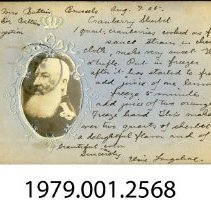 Mrs Buttin, Brussels Aug. 9-05.
Cranberry Sherbet
1 quart cranberries cooked in
sauce strain in cheese
cloth, make very sweet
Put in freezer
after it has started to freeze
add juice of one lemon
freeze 5 minutes
add juice of two oranges
Freeze hard This makes
over two quarts of sherbet
a delightful flavor and of
beautiful color
Sincerely,
1979.001.2568